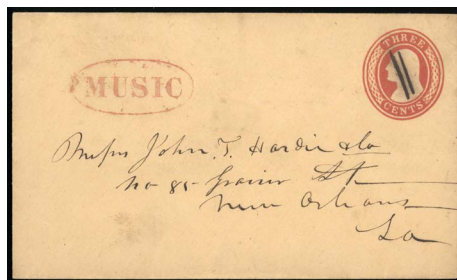 THREE
CENTS
MUSIC
John. T. Hardie & Co
No 85 Gravier St
New Orleans
La